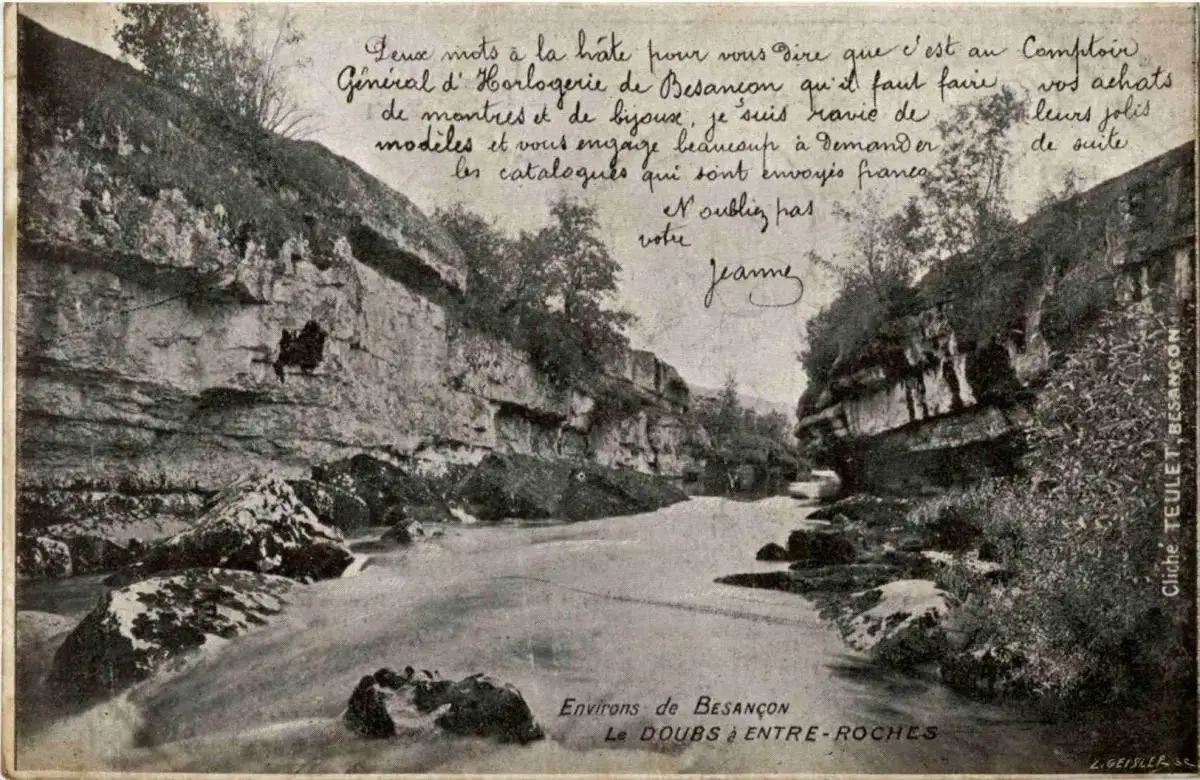 Deux mots à la hâte pour vous dire que c'est au Comptoir
Général d'Horlogerie de Besançon qu'il faut faire vos achats
de montres et de bijoux, je suis ravie de leurs jolis
modèles et vous engage beaucoup à demander de suite
les catalogues qui sont envoyés franco
N'oubliez pas
votre
Jeanne
Cliché TEULET, BESANÇON
Environs de BESANÇON
Le DOUBS à ENTRE-ROCHES
L. GEISLER SC